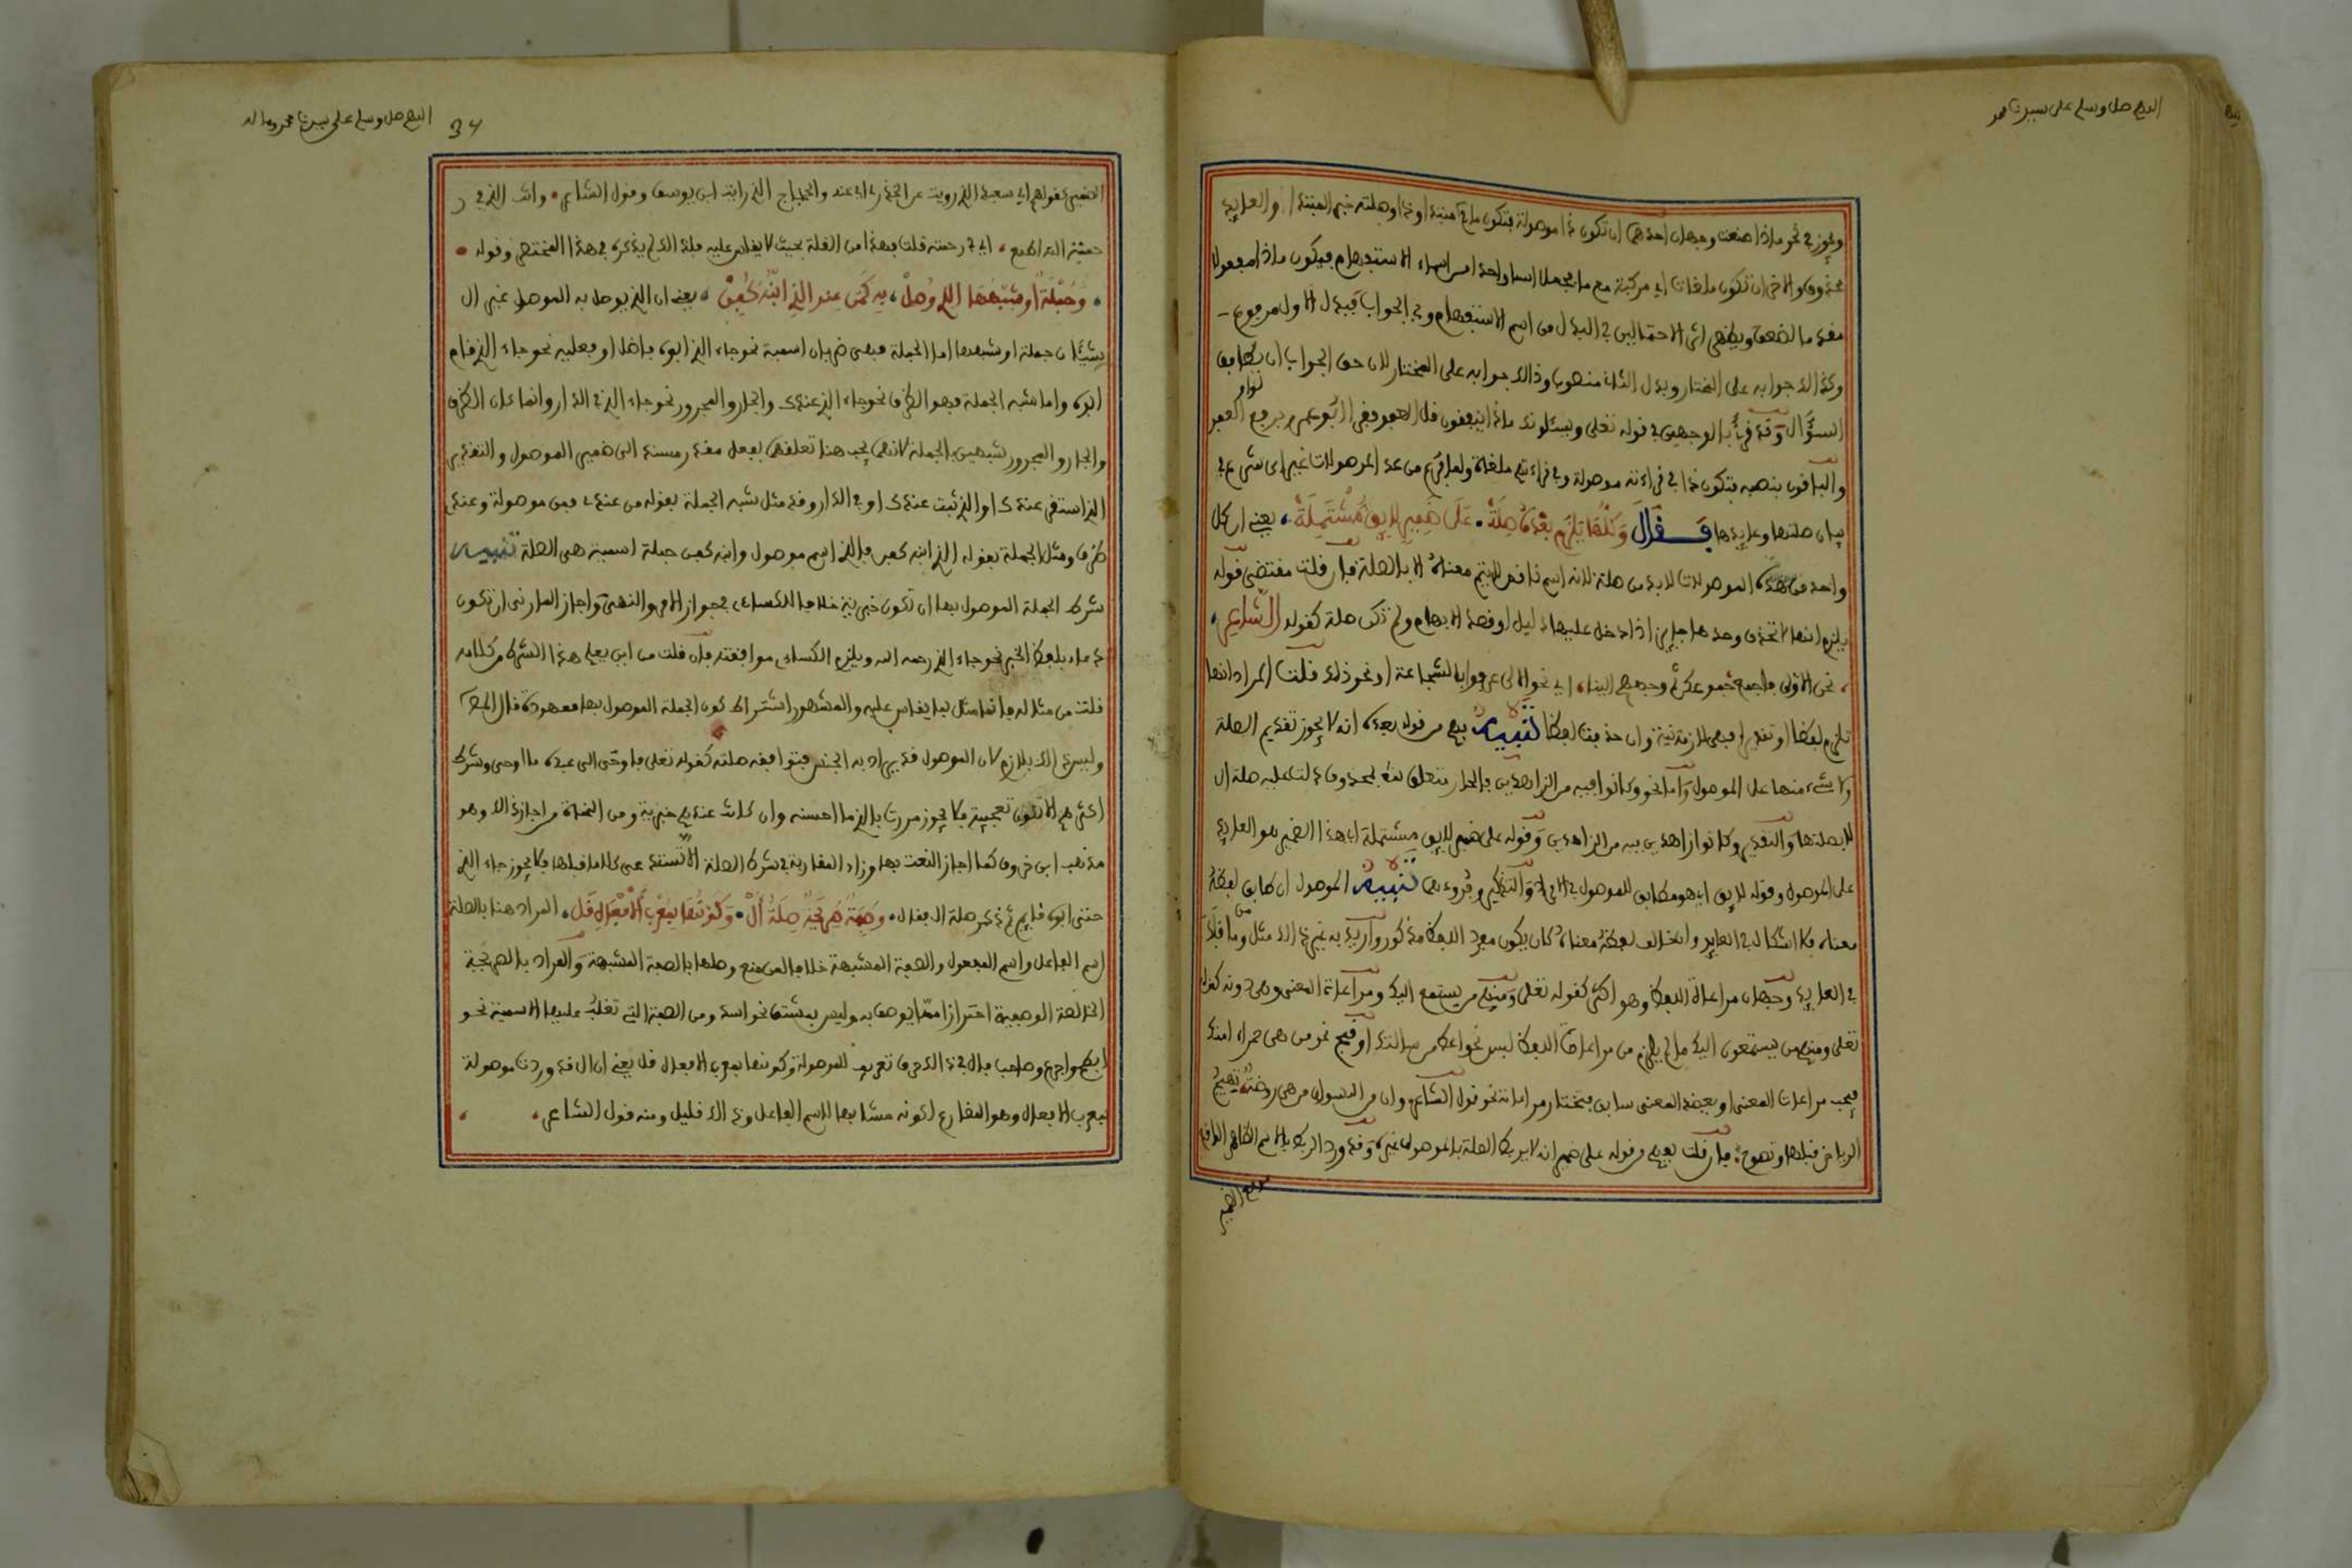 اللهم صل وسلم على سيدنا محمد
ويجوز في نحو ماذا صنعت وجهان احدهما ان تكون ذا موصولة فتكون ما مبتدءا وذا وصلته خبر المبتدءا والعايد
محذوف والاخر ان تكون ملغات اي مركبة مع ما بجعلا اسما واحدا من اسماء الاستفهام فيكون ماذا مفعولا
مقدما لصنعت ويظهر اثر الاحتمالين في البدل من اسم الاستفهام وفي الجواب فبدل الاول مرفوع
وكذالك جوابه على المختار وبدل الثاني منصوب وذالك جوابه على المختار لان حق الجواب ان يطابق
السؤال وقد قرئ بالوجهين في قوله تعلى ويسئلونك ماذا ينفقون قل العفو فقرا ابو عمرو برفع العفو
والباقون بنصبه فتكون ذا في قراءته موصولة وفي قراءتهم ملغاة ولما فرغ من عد الموصولات غير اي شرع في
بيان صلتها وعايدها فقال وكلها يلزم بعده صلة على ضمير لايق مشتملة يعني ان كل
واحد من هذه الموصولات لابد من صلة لانه اسم ناقص لايتم معناه الا بالصلة فان قلت مقتضى قوله
يلزم انها لا تحذف وحذفها جايز اذا دخل عليها دليل او قصد الابهام ولم تذكر صلة كقوله الشاعر
نحن الاولى فاجمع جموعك ثم وجههم الينا اي نحن الاولى عرفوا بالشجاعة او نحو ذلك قلت المراد انها
تلزم لفظا او تقديرا فهي لازمة نية وان حذفت لفظا تنبيه فهم من قوله بعده انه لا يجوز تقديم الصلة
ولا شيء منها على الموصول واما نحو وكانوا فيه من الزاهدين فالجار متعلق بمحذوف دلت عليه صلة ال
لا بصلتها والتقدير وكانوا زاهدين فيه من الزاهدين وقوله على ضمير لايق مشتملة اي هذا الضمير هو العايد
على الموصول وقوله لايق اي هو مطابق للموصول في الافراد والتذكير وفروعهما تنبيه الموصول ان طابق لفظه
معناه فلا اشكال في العايد وان خالف لفظه معناه كان يكون مفرد اللفظ مذكورا واريد به غير ذالك مثل من وما فلك
في العايد وجهان مراعاة اللفظ وهو اكثر كقوله تعلى ومنهم من يستمع اليك ومراعاة المعنى وهي دونه كقوله
تعلى ومنهم من يستمعون اليك ما لم يلزم من مراعاة اللفظ لبس نحو اعط من سالتك او قبح نحو من هي حمراء امتك
فيجب مراعات المعنى او يعضد المعنى سابق فتختار مراعاته نحو قول الشاعر وان من النسوان من هي روضة تهيج
الرياض قبلها وتصوح فان قلت يفهم من قوله على ضمير انه لا يربط الصلة بالموصول غيره وقد ورد الربط بالاسم الظاهر الواقع
موقع الضمير
اللهم صل وسلم على سيدنا محمد وءاله
34
الضمير كقولهم ابي سعيد الذي رويت عن الخذري اي عنه والحجاج الذي رايت ابن يوسف وقول الشاعر وانت الذي في ر
حمت الله اطمع اي في رحمته قلت هذا من القلة بحيث لا يقاس عليه فلذالك لم يذكره في هذا المختصر وقوله
وجملة او شبهها الذي وصل به كمن عندي الذي ابنه كفل يعني ان الذي يوصل به الموصول غير ال
شيئان جملة او شبهها اما الجملة فهي ضربان اسمية نحو جاء الذي ابوه فاضل او فعلية نحو جاء الذي قام
ابوه واما شبه الجملة فهو الظرف نحو جاء الذي عندك والجار والمجرور نحو جاء الذي في الدار وانما كان الظرف
والجار والمجرور شبيهين بالجملة لانهما يجب هنا تعلقهما بفعل مقدر مسند الى ضمير الموصول والتقدير
الذي استقر عندك او الذي ثبت عندك او في الدار وقد مثل شبه الجملة بقوله من عندي فمن موصولة وعندي
ظرف ومثل الجملة بقوله الذي ابنه كفل فالذي اسم موصول وابنه كفل جملة اسمية هي الصلة تنبيه
شرط الجملة الموصول بها ان تكون خبرية خلافا للكساءى في جواز الامر والنهي واجاز المازنى ان تكون
دعاء بلفظ الخبر نحو جاء الذي رحمه الله ويلزم الكساءى موافقته فان قلت من اين يعلم هذا الشرط من كلامه
قلت من مثاله فانما مثل بما يقاس عليه والمشهور اشتراط كون الجملة الموصول بها معهودة قال المص
وليس ذالك بلازم لان الموصول قد يراد به الجنس فتوافقه صلته كقوله تعلى فاوحى الى عبده ما اوحى وشرط
اكثرهم الا تكون تعجبية فلا يجوز مررت بالذي ما احسنه وان كانت عندهم خبرية ومن النحاة من اجاز ذالك وهو
مذهب ابن خروف كما اجاز النعت بها وزاد المغاربة في شرط الصلة الا تستدعى كلاما قبلها فلا يجوز جاء الذي
حتى ابوه قايم ثم ذكر صلة ال فقال وصفة صريحة صلة ال وكونها بمعرب الافعال قل المراد هنا بالصلة
اسم الفاعل واسم المفعول والصفة المشبهة خلافا لمن منع وصلها بالصفة المشبهة والمراد بالصريحة
الخالصة الوصفية احترازا مما يوصف به وليس بمشتق نحو اسد ومن الصفة التي تغلب عليها الاسمية نحو
ابطح واجرع وصاحب فال في ذالك حرف تعريف لا موصولة وكونها بمعرب الافعال قل يعني ان ال قد وردت موصولة
بمعرب الافعال وهو المضارع لكونه مشابها لاسم الفاعل وذالك قليل ومنه قول الشاعر